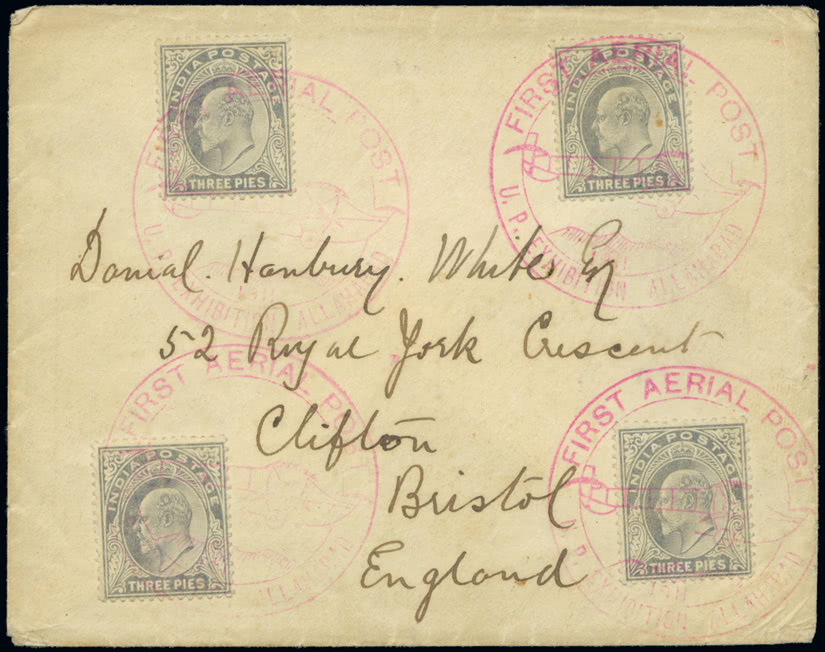 INDIA POSTAGE
THREE PIES
FIRST AERIAL POST
U. P. EXHIBITION ALLAHABAD
INDIA POSTAGE
THREE PIES
FIRST AERIAL POST
U. P. EXHIBITION ALLAHABAD
Danial. Hanbury. White Esq
52 Royal York Crescent
Clifton
Bristol
England
FIRST AERIAL POST
ALLAHABAD
INDIA POSTAGE
THREE PIES
FIRST AERIAL POST
P. EXHIBITION ALLAHABAD
1911
INDIA POSTAGE
THREE PIES